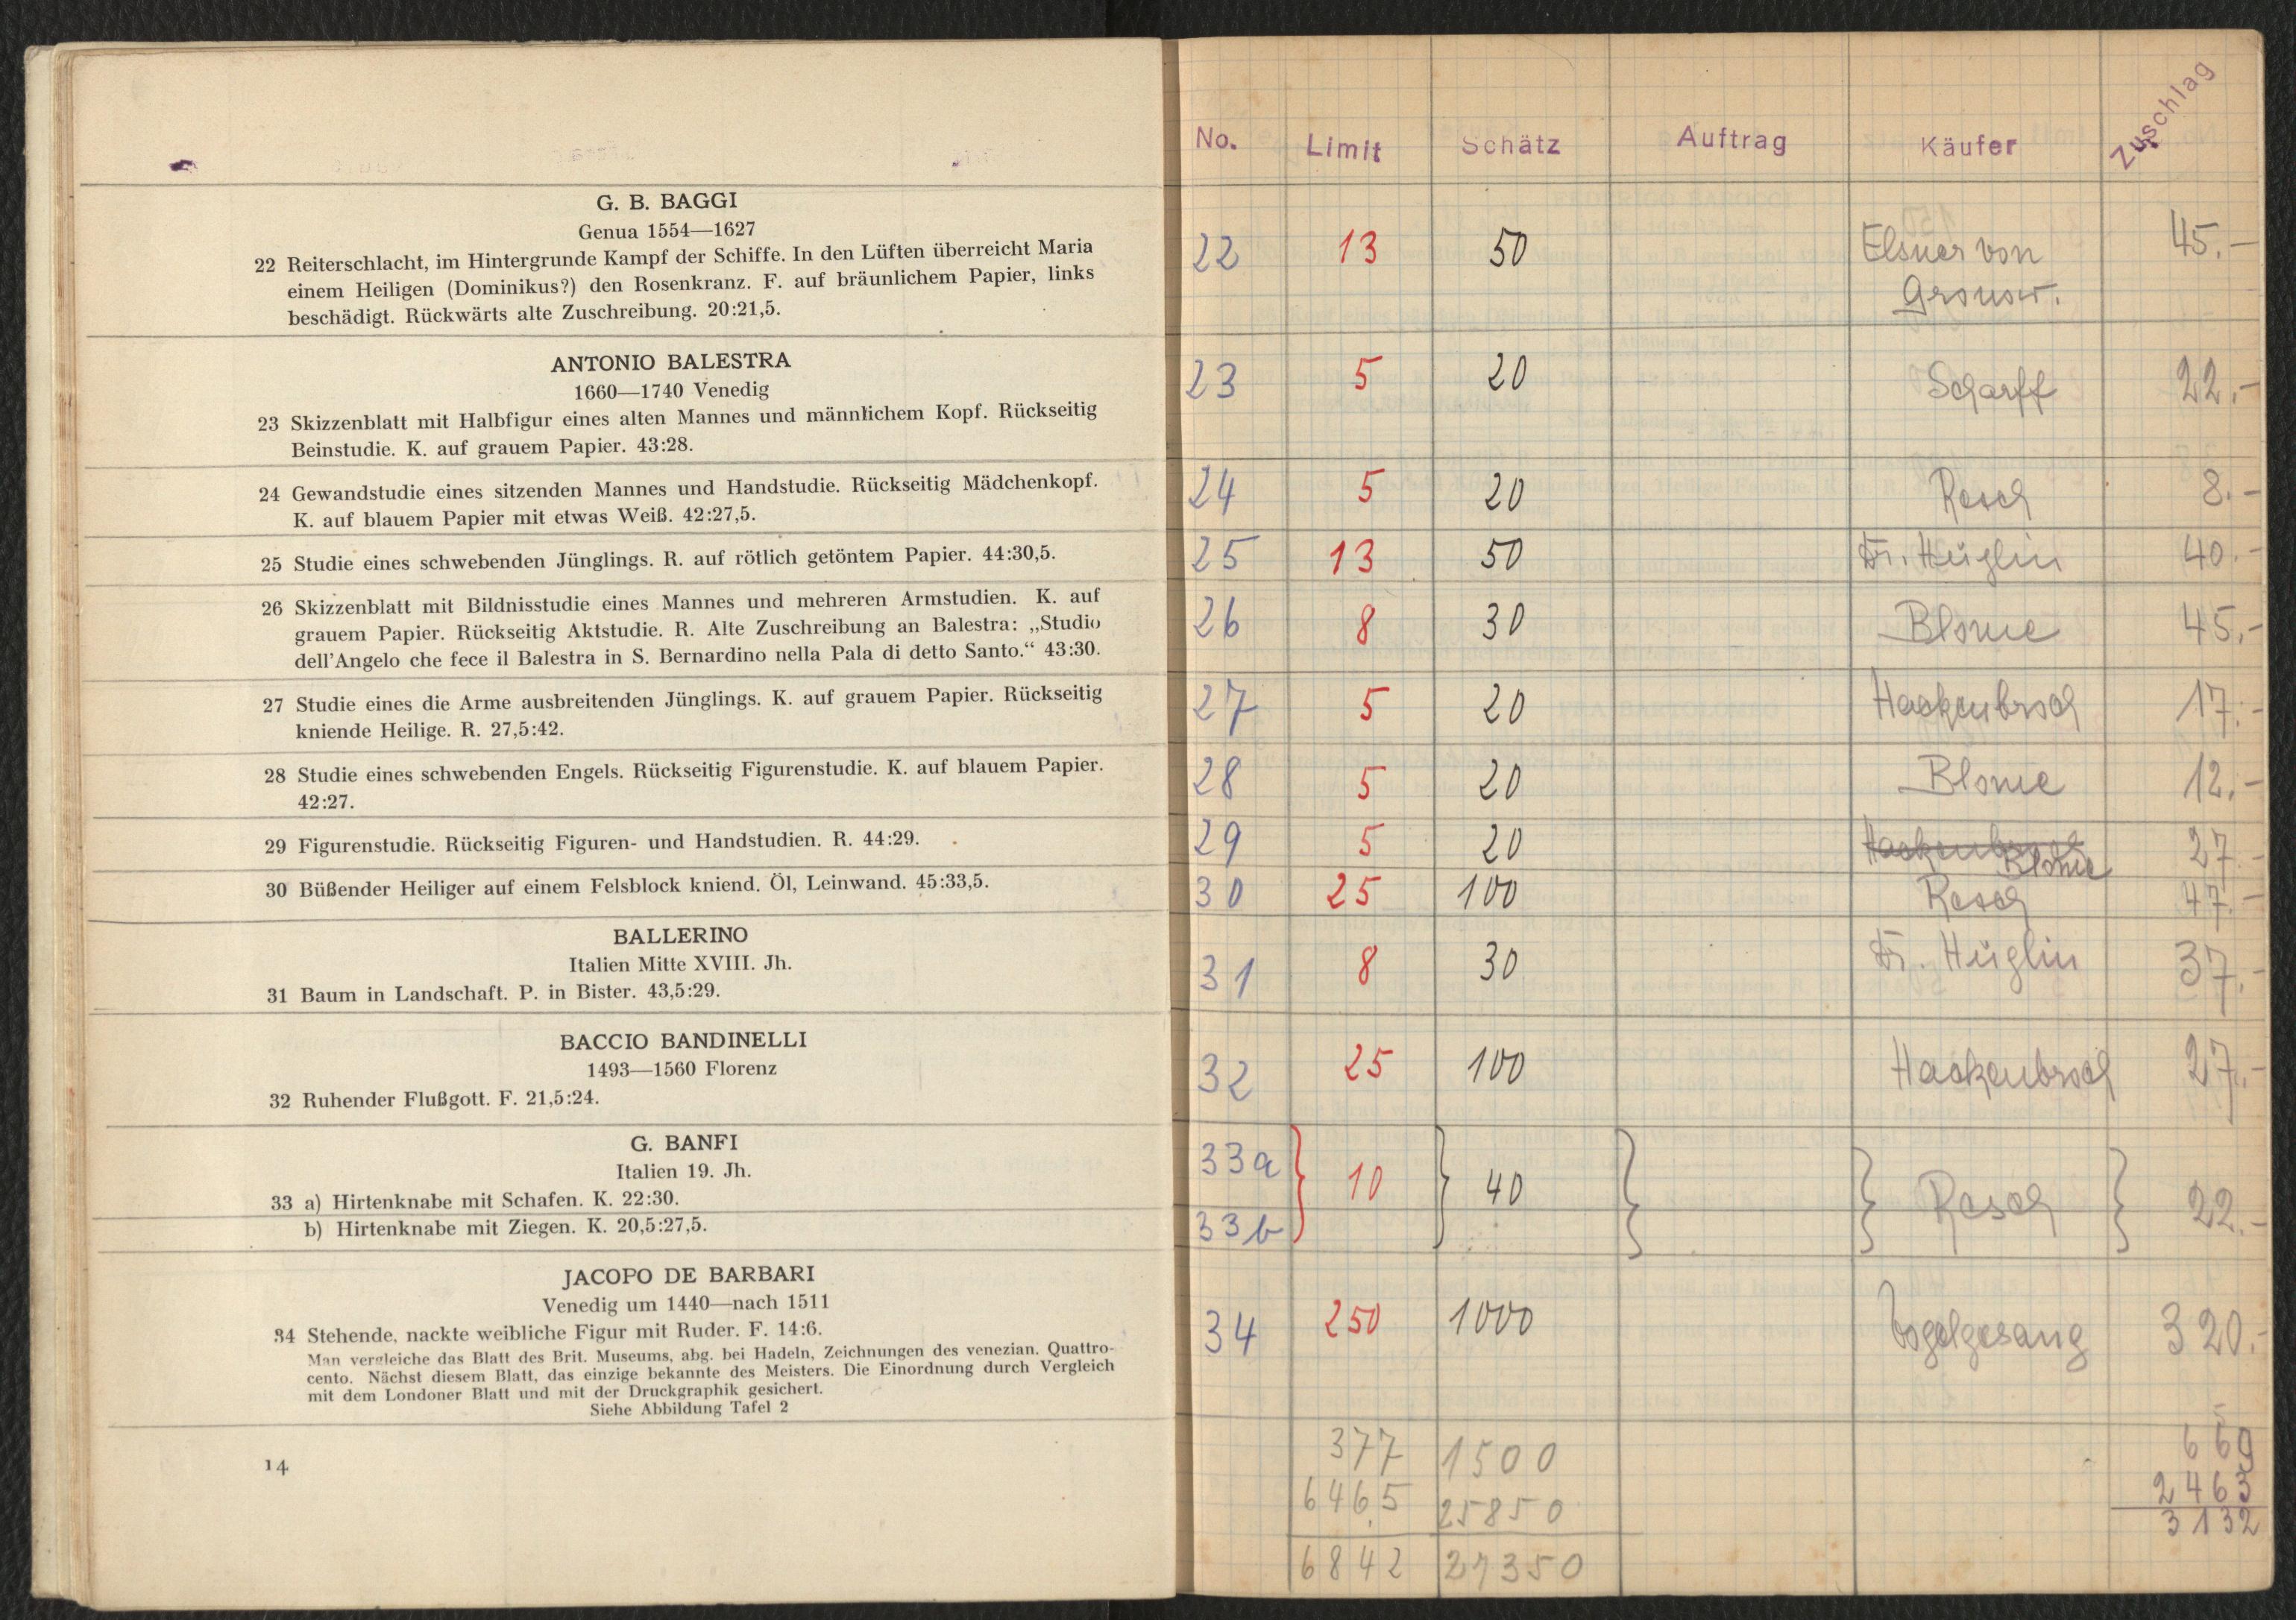 G. B. BAGGI
Genua 1554—1627
22 Reiterschlacht, im Hintergrunde Kampf der Schiffe. In den Lüften überreicht Maria
einem Heiligen (Dominikus?) den Rosenkranz. F. auf bräunlichem Papier, links
beschädigt. Rückwärts alte Zuschreibung. 20:21,5.
ANTONIO BALESTRA
1660—1740 Venedig
23 Skizzenblatt mit Halbfigur eines alten Mannes und männlichem Kopf. Rückseitig
Beinstudie. K. auf grauem Papier. 43:28.
24 Gewandstudie eines sitzenden Mannes und Handstudie. Rückseitig Mädchenkopf.
K. auf blauem Papier mit etwas Weiß. 42:27,5.
25 Studie eines schwebenden Jünglings. R. auf rötlich getöntem Papier. 44:30,5.
26 Skizzenblatt mit Bildnisstudie eines Mannes und mehreren Armstudien. K. auf
grauem Papier. Rückseitig Aktstudie. R. Alte Zuschreibung an Balestra: „Studio
dell'Angelo che fece il Balestra in S. Bernardino nella Pala di detto Santo.“ 43:30.
27 Studie eines die Arme ausbreitenden Jünglings. K. auf grauem Papier. Rückseitig
kniende Heilige. R. 27,5:42.
28 Studie eines schwebenden Engels. Rückseitig Figurenstudie. K. auf blauem Papier.
42:27.
29 Figurenstudie. Rückseitig Figuren- und Handstudien. R. 44:29.
30 Büßender Heiliger auf einem Felsblock kniend. Öl, Leinwand. 45:33,5.
BALLERINO
Italien Mitte XVIII. Jh.
31 Baum in Landschaft. P. in Bister. 43,5:29.
BACCIO BANDINELLI
1493—1560 Florenz
32 Ruhender Flußgott. F. 21,5:24.
G. BANFI
Italien 19. Jh.
33 a) Hirtenknabe mit Schafen. K. 22:30.
b) Hirtenknabe mit Ziegen. K. 20,5:27,5.
JACOPO DE BARBARI
Venedig um 1440—nach 1511
34 Stehende, nackte weibliche Figur mit Ruder. F. 14:6.
Man vergleiche das Blatt des Brit. Museums, abg. bei Hadeln, Zeichnungen des venezian. Quattro-
cento. Nächst diesem Blatt, das einzige bekannte des Meisters. Die Einordnung durch Vergleich
mit dem Londoner Blatt und mit der Druckgraphik gesichert.
Siehe Abbildung Tafel 2
14
No. Limit Schätz Auftrag Käufer Zuschlag
22 13 50 Elsner von 45.-
Gronow.
23 5 20 Scharff 22.-
24 5 20 Resch 8.-
25 13 50 Dr. Hüglin 40.-
26 8 30 Blome 45.-
27 5 20 Hackenbroch 17.-
28 5 20 Blome 12.-
29 5 20 Hackenbroch 27.-
Blome
30 25 100 Resch 47.-
31 8 30 Dr. Hüglin 37.-
32 25 100 Hackenbroch 27.-
33a
10 40 Resch 22.-
33b
34 250 1000 Vogelgesang 320.-
377 1500 669
6465 25850 2463
6842 27350 3132